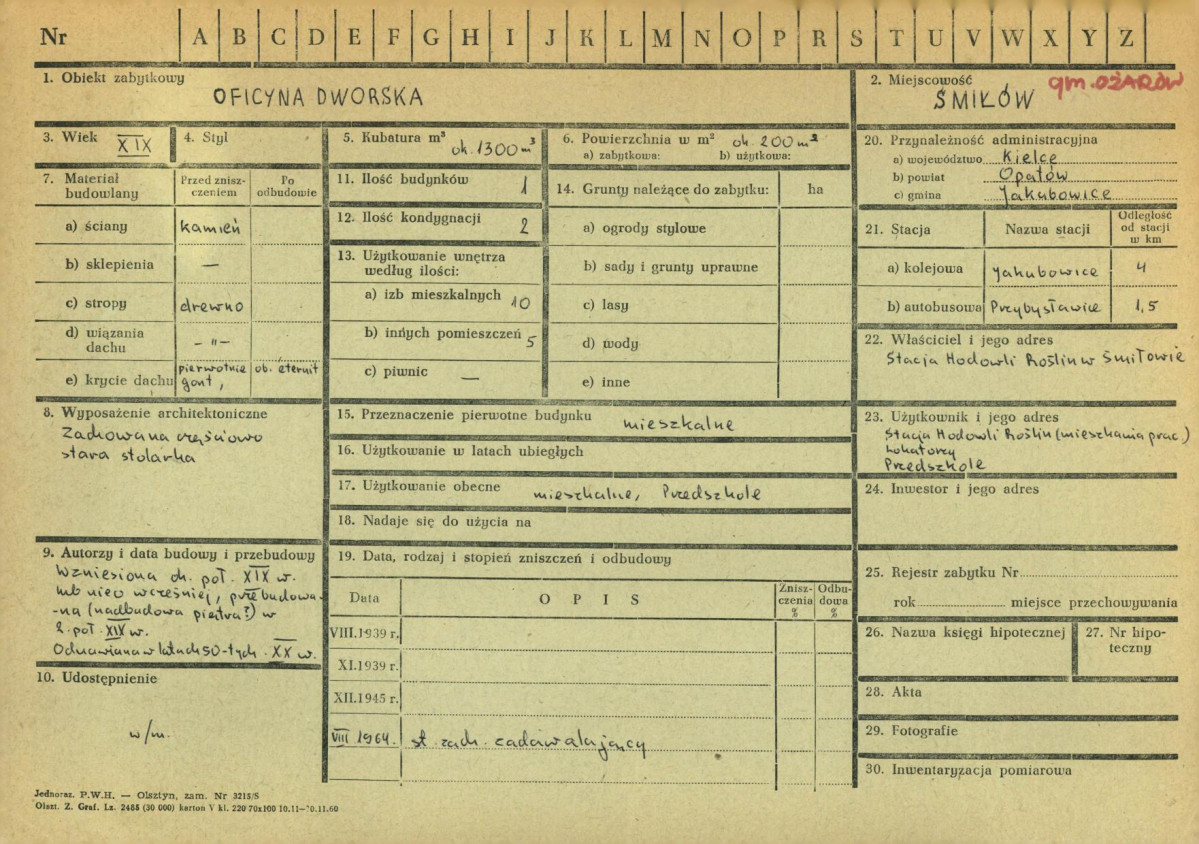 Nr A B C D E F G H I J K L M N O P R S T U V W X Y Z
1. Obiekt zabytkowy
OFICYNA DWORSKA
2. Miejscowość
gm. OŻARÓW
ŚMIŁÓW
3. Wiek XIX
4. Styl
5. Kubatura m³ ok. 1300 m³
6. Powierzchnia w m² ok. 200 m²
a) zabytkowa: b) użytkowa:
7. Materiał budowlany
Przed zniszczeniem
Po odbudowie
a) ściany kamień
b) sklepienia —
c) stropy drewno
d) wiązania dachu – " –
e) krycie dachu pierwotnie gont, ob. eternit
8. Wyposażenie architektoniczne
Zachowana częściowo
stara stolarka
9. Autorzy i data budowy i przebudowy
Wzniesiona ok. poł. XIX w.
lub nieco wcześniej, przebudowa-
-na (nadbudowa piętra?) w
2. poł. XIX w.
Odnawiana w latach 50-tych XX w.
10. Udostępnienie
w/m.
11. Ilość budynków 1
12. Ilość kondygnacji 2
13. Użytkowanie wnętrza
według ilości:
a) izb mieszkalnych 10
b) innych pomieszczeń 5
c) piwnic —
14. Grunty należące do zabytku: ha
a) ogrody stylowe
b) sady i grunty uprawne
c) lasy
d) wody
e) inne
15. Przeznaczenie pierwotne budynku mieszkalne
16. Użytkowanie w latach ubiegłych
17. Użytkowanie obecne mieszkalne, Przedszkole
18. Nadaje się do użycia na
19. Data, rodzaj i stopień zniszczeń i odbudowy
Data O P I S Zniszczenia % Odbudowa %
VIII.1939 r.
XI.1939 r.
XII.1945 r.
VIII 1964. st. zach. zadawalający
20. Przynależność administracyjna
a) województwo Kielce
b) powiat Opatów
c) gmina Jakubowice
21. Stacja Nazwa stacji Odległość od stacji w km
a) kolejowa Jakubowice 4
b) autobusowa Przybysławice 1,5
22. Właściciel i jego adres
Stacja Hodowli Roślin w Śmiłowie
23. Użytkownik i jego adres
Stacja Hodowli Roślin (mieszkania prac.)
Lokatorzy
Przedszkole
24. Inwestor i jego adres
25. Rejestr zabytku Nr
rok miejsce przechowywania
26. Nazwa księgi hipotecznej
27. Nr hipoteczny
28. Akta
29. Fotografie
30. Inwentaryzacja pomiarowa
Jednoraz. P.W.H. — Olsztyn, zam. Nr 3215/S
Olszt. Z. Graf. Lz. 2485 (30 000) karton V kl. 220 70x100 10.11—